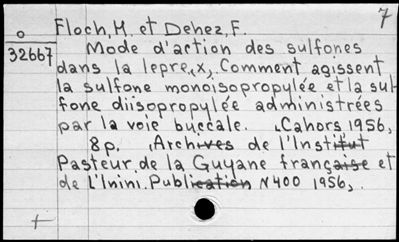 7
o Floch, H. et Dehez, F.
32667 Mode d'action des sulfones
dans la lepre, x, Comment agissent
la sulfone monoisopropylée et la sul-
fone diisopropylée administrées
par la voie buccale. Cahors 1956,
8p. Archives de l'Institut
Pasteur de la Guyane française et
de L'Inini. Publication N400 1956,
+